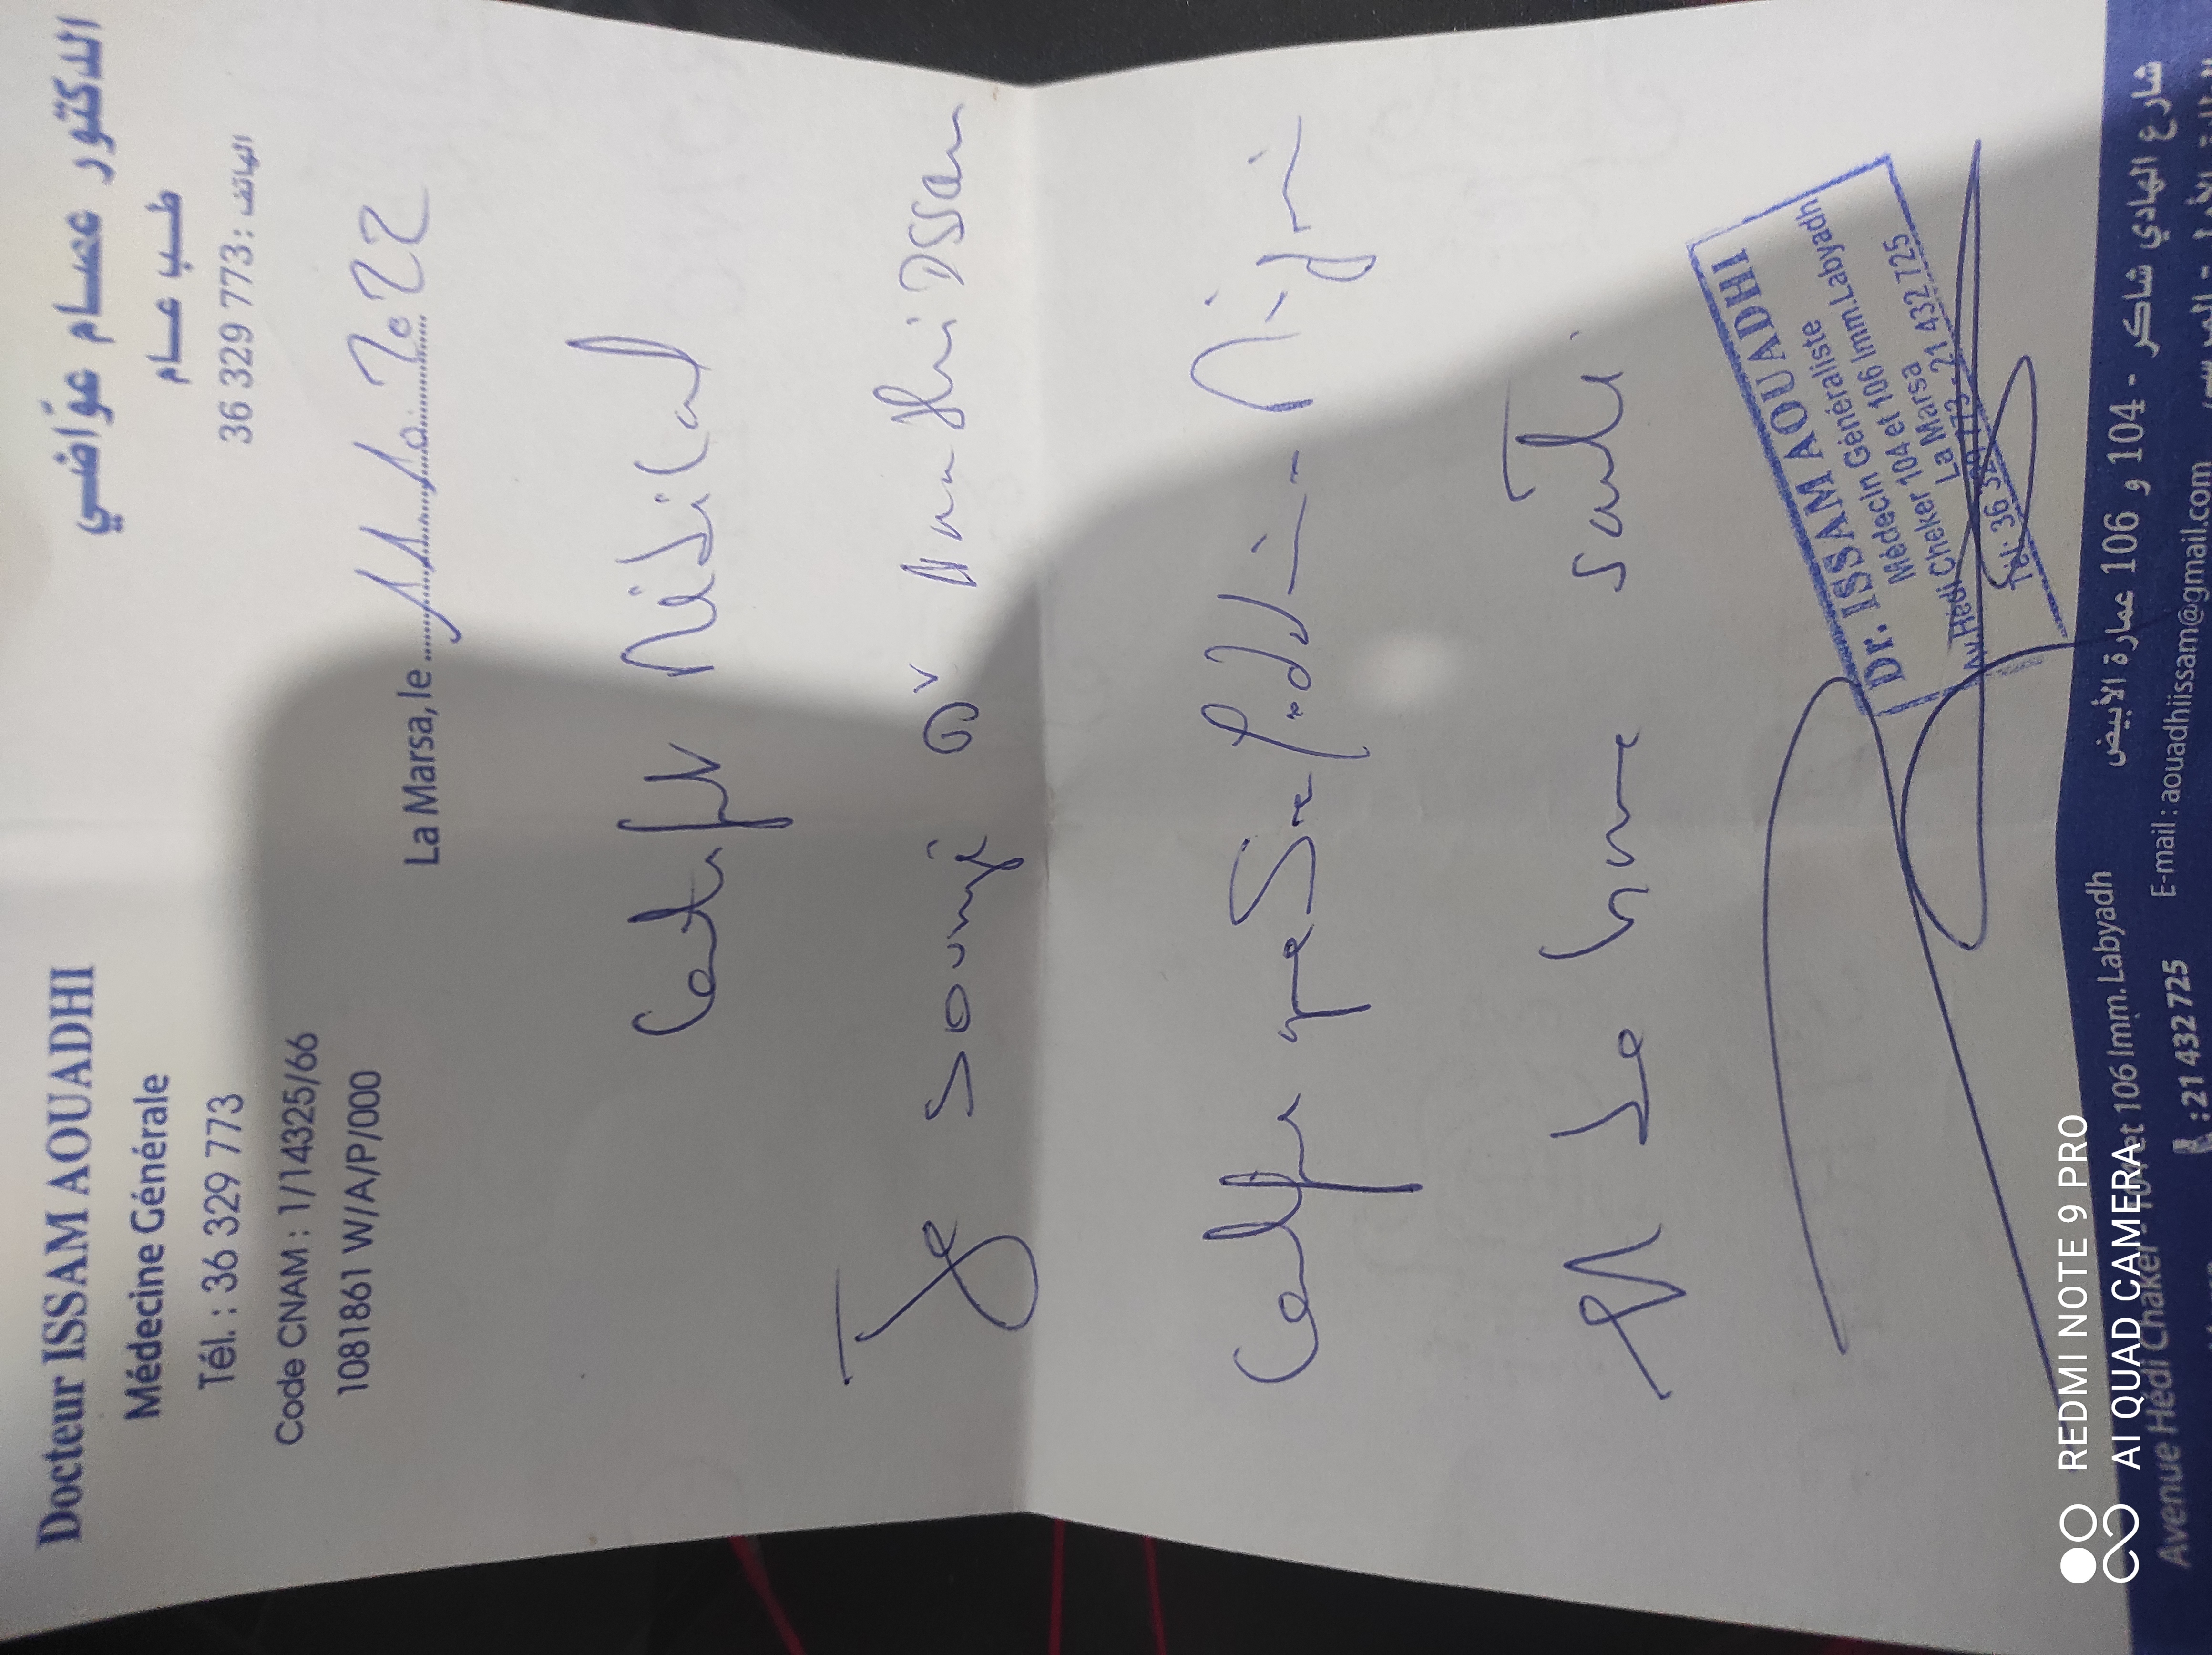 Docteur ISSAM AOUADHI
Médecine Générale
Tél. : 36 329 773
Code CNAM : 1/14325/66
1081861 W/A/P/000
الدكتور عصام عوّاضي
طب عام
الهاتف : 36 329 773
La Marsa, le 2022
Certificat Médical
Je soussigné Dr Issam
Certifie que
est de bonne santé
Dr. ISSAM AOUADHI
Médecin Généraliste
Av. Hédi Cheker 104 et 106 Imm. Labyadh
La Marsa
Tél: 36 329 773 - 21 432 725
Avenue Hédi Chaker - 104 et 106 Imm. Labyadh
شارع الهادي شاكر - 104 و 106 عمارة الأبيض
: 21 432 725 E-mail : aouadhiissam@gmail.com
REDMI NOTE 9 PRO
AI QUAD CAMERA